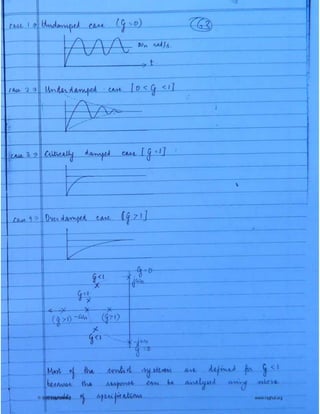 Case 1 ⇒ Undamped case (ξ=0)
ωn rad/s
t
Case 2 ⇒ Underdamped case [0<ξ<1]
Case 3 ⇒ Critically damped case [ξ=1]
Case 4 ⇒ Overdamped case [ξ>1]
ξ=0
ξ<1
jωn
ξ=1
(ξ>1) -ωn (ξ>1)
ξ<1
-jωn
ξ=0
Most of the control systems are defined for ξ<1
because the response can be analysed using more
of specifications